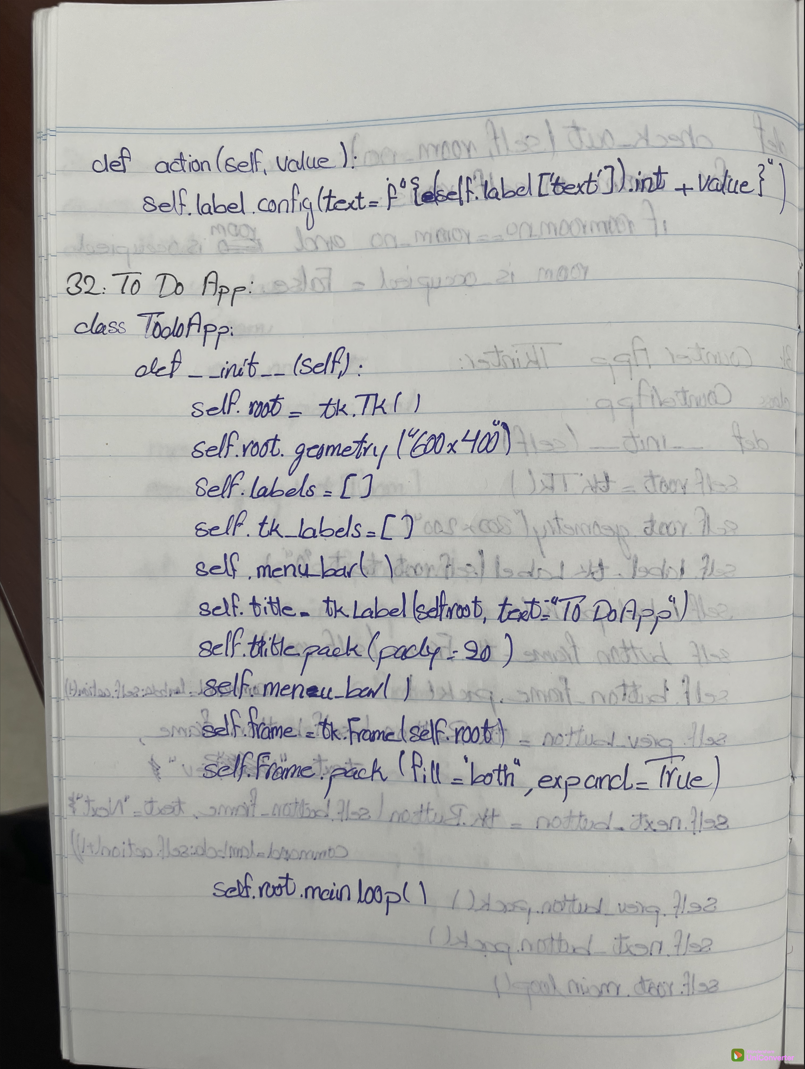 def action(self, value):
self.label.config(text = f"{(self.label['text']).int + value}")
32. To Do App:
class TodoApp:
def __init__(self):
self.root = tk.Tk()
self.root.geometry("600x400")
self.labels = []
self.tk_labels = []
self.menu_bar()
self.title = tk.Label(self.root, text="To Do App")
self.title.pack(pady = 20)
self.menu_bar()
self.frame = tk.Frame(self.root)
self.frame.pack(fill = "both", expand = True)
self.root.mainloop()